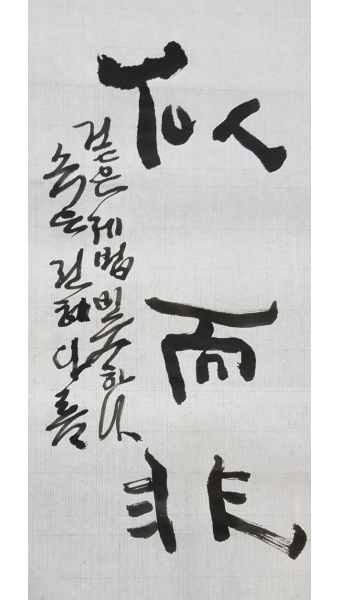 似而非
겉은 제법 비슷하나
속은 전혀 다름